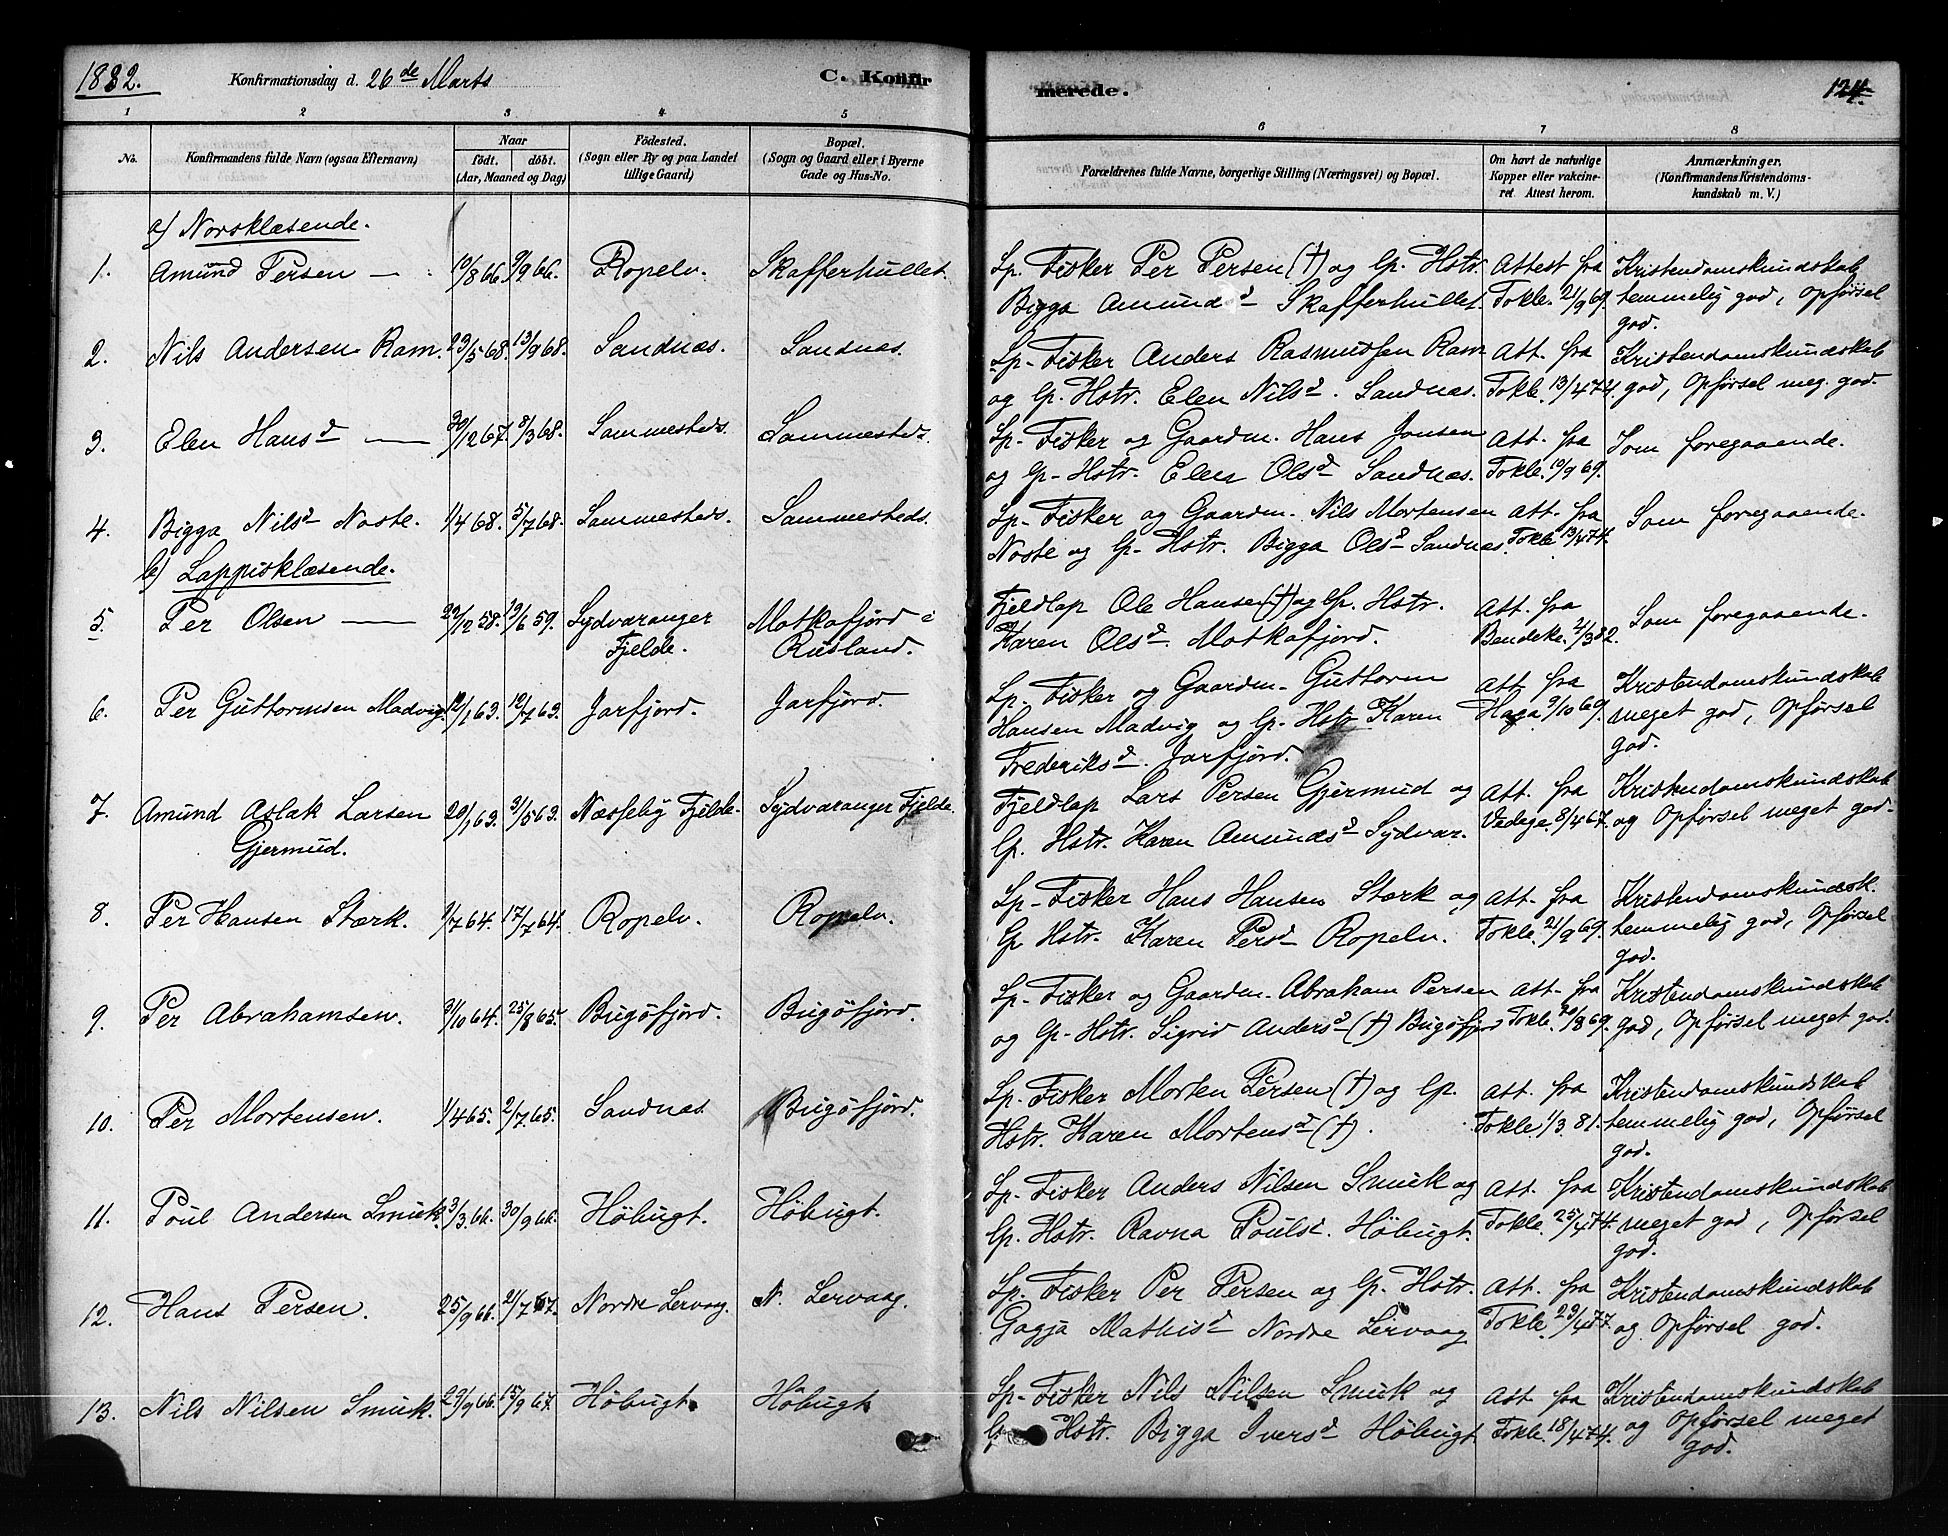 1882. Konfirmationsdag d. 26de Marts C. Konfir merede. 124.
1 2 3 4 5 6 7 8
No. Konfirmandens fulde Navn (ogsaa Efternavn) Naar født. døbt. (Aar, Maaned og Dag) Fødested. (Sogn eller By og paa Landet tillige Gaard) Bopæl. (Sogn og Gaard eller i Byerne Gade og Hus-No. Forældrenes fulde Navne, borgerlige Stilling (Næringsvei) og Bopæl. Om havt de naturlige Kopper eller vakcineret. Attest herom. Anmærkninger. (Konfirmandens Kristendomskundskab m. V.)
a) Norsklæsende.
1. Amund Persen — 10/8 66. 9/9 66. Ropelv. Skafferhullet. Lp. Fisker Per Persen (†) og lp. Hstr. Attest fra Kristendomskundskab
Bigga Amundsd Skafferhullet. Tokle. 21/9 69. temmelig god, Opførsel
god.
2. Nils Andersen Ram. 23/5 68. 13/9 68. Sandnæs. Sandnæs. Lp. Fisker Anders Rasmussen Ram Att. fra Kristendomskundskab
og lp. Hstr. Elen Nilsd. Sandnæs. Tokle. 13/4 74. god, Opførsel meg. god.
3. Elen Hansd — 30/12 67. 8/3 68. Sammesteds. Sammesteds. Lp. Fisker og Gaardm. Hans Jonsen Att. fra Som foregaaende.
og lp. Hstr. Elen Olsd Sandnæs. Tokle. 10/9 69.
4. Bigga Nilsd Noste. 1/4 68. 5/7 68. Sammesteds. Sammesteds. Lp. Fisker og Gaardm. Nils Mortensen Att. fra Som foregaaende.
Noste og lp. Hstr. Bigga Olsd Sandnæs. Tokle. 13/4 74.
b) Lappisklæsende.
5. Per Olsen — 29/12 58. 19/6 59. Sydvaranger Matkafjord i Fjeldlap Ole Hansen (†) og lp. Hstr. Att. fra Som foregaaende.
Fjelde. Rusland. Karen Olsd. Matkafjord. Bendeke. 2/3 82.
6. Per Guttormsen Madvig. 12/1 63. 12/7 63. Jarfjord. Jarfjord. Lp. Fisker og Gaardm. Guttorm Att. fra Kristendomskundskab
Hansen Madvig og lp. Hstr. Karen Haga 9/10 69. meget god, Opførsel
Frederiksd. Jarfjord. god.
7. Amund Aslak Larsen 20/1 63. 3/5 63. Næsseby Fjelde. Sydvaranger Fjelde. Fjeldlap Lars Persen Gjermud og Att. fra Kristendomskundskab
Gjermud. lp. Hstr. Karen Amundsd Sydvar. Vedege. 8/4 67. og Opførsel meget god.
8. Per Hansen Stærk. 1/7 64. 17/7 64. Ropelv. Ropelv. Lp. Fisker Hans Hansen Stærk og Att. fra Kristendomskundsk.
lp Hstr. Karen Persd Ropelv. Tokle. 21/9 69. temmelig god, Opførsel
god.
9. Per Abrahamsen. 31/10 64. 25/8 65. Bugøfjord. Bugøfjord. Lp. Fisker og Gaardm. Abraham Persen Att. fra Kristendomskundskab
og lp. Hstr. Sigrid Andersd (†) Bugøfjord Tokle. 30/8 69. god, Opførsel meget god.
10. Per Mortensen. 1/4 65. 2/7 65. Sandnæs Bugøfjord. Lp. Fisker Morten Persen (†) og lp. Att. fra Kristendomskundskab
Hstr. Karen Mortensd (†). Tokle. 1/3. 81. temmelig god, Opførsel
god.
11. Poul Andersen Smuk. 3/3 66. 30/9 66. Høbugt. Høbugt. Lp. Fisker Anders Nilsen Smuk og Att. fra Kristendomskundskab
lp. Hstr. Ravna Poulsd. Høbugt. Tokle. 25/4 74. meget god, Opførsel
god.
12. Hans Persen. 25/9 66. 21/7 67. Nordre Lervaag. N. Lervaag. Lp. Fisker Per Persen og lp. Hstr. Att. fra Kristendomskundskab
Gagja Mathisd Nordre Lervaag Tokle. 29/4 77. og Opførsel god.
13. Nils Nilsen Smuk. 29/9 66. 15/9 67. Høbugt. Høbugt. Lp. Fisker Nils Nilsen Smuk og Att. fra Kristendomskundskab
lp Hstr. Bigga Iversd Høbugt. Tokle. 18/4 74. og Opførsel meget
god.